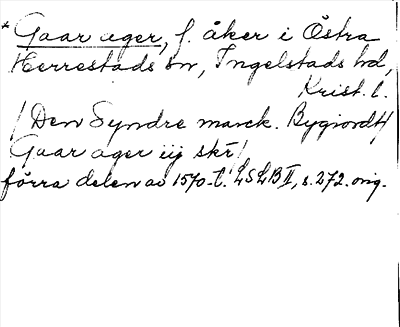 * Gaar ager, f. åker i Östra
Herrestads sn, Ingelstads hd,
Krist. l.
/Den Syndre marck. Bygiordt/
Gaar ager iij skr/
förra delen av 1570-t. LSLB II, s. 272. orig.